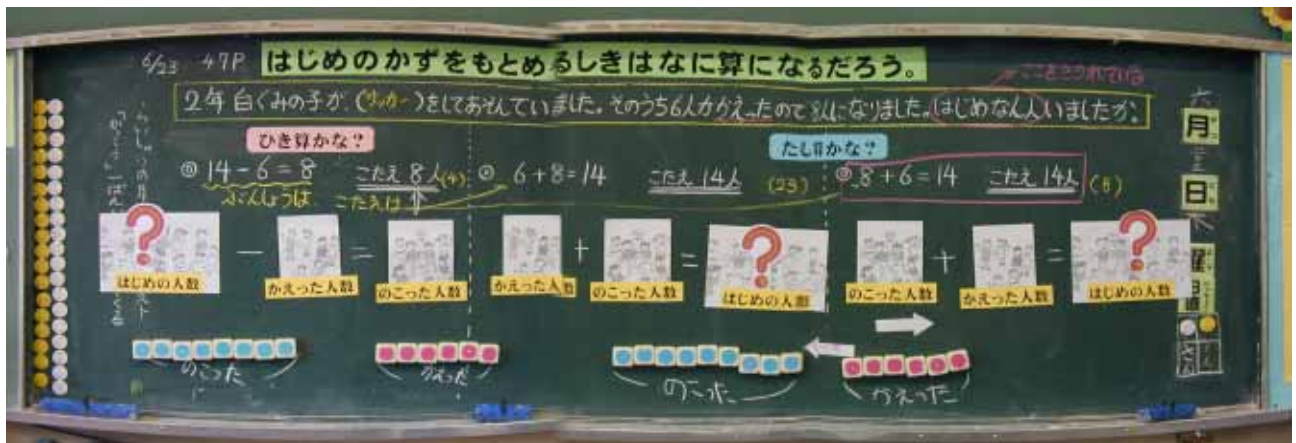 6/23 47P はじめのかずをもとめるしきはなに算になるだろう。
2年白ぐみの子が、(サッカー)をしてあそんでいました。そのうち6人がかえったので8人になりました。はじめなん人いましたか。
ひき算かな?
たし算かな?
14-6=8
こたえ 8人(4)
ぶんしょうは
こたえは
6+8=14
こたえ 14人
(23)
8+6=14
こたえ 14人
(8)
? はじめの人数 - かえった人数 = のこった人数
かえった人数 + のこった人数 = ? はじめの人数
のこった人数 + かえった人数 = ? はじめの人数
のこった
かえった
のこった
かえった
六月
日
曜